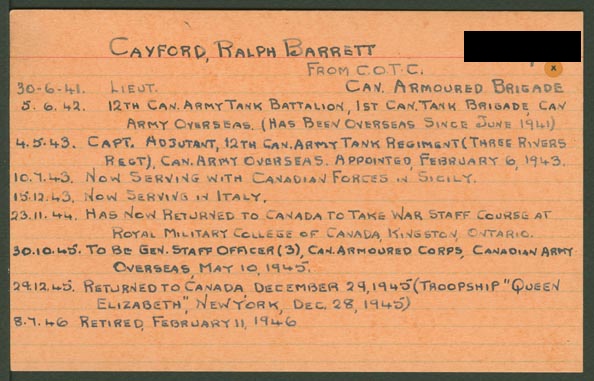 CAYFORD, RALPH BARRETT
FROM C.O.T.C.
x
30-6-41. LIEUT. CAN. ARMOURED BRIGADE
5.6.42. 12TH CAN. ARMY TANK BATTALION, 1ST CAN. TANK BRIGADE, CAN
ARMY OVERSEAS. (HAS BEEN OVERSEAS SINCE JUNE 1941)
4.5.43. CAPT. ADJUTANT, 12TH CAN. ARMY TANK REGIMENT (THREE RIVERS
REGT), CAN. ARMY OVERSEAS. APPOINTED, FEBRUARY 6, 1943.
10.7.43. NOW SERVING WITH CANADIAN FORCES IN SICILY.
15.12.43. NOW SERVING IN ITALY.
23.11.44. HAS NOW RETURNED TO CANADA TO TAKE WAR STAFF COURSE AT
ROYAL MILITARY COLLEGE OF CANADA, KINGSTON, ONTARIO.
30.10.45. TO BE GEN. STAFF OFFICER (3), CAN. ARMOURED CORPS, CANADIAN ARMY
OVERSEAS, MAY 10, 1945.
29.12.45. RETURNED TO CANADA DECEMBER 29, 1945 (TROOPSHIP "QUEEN
ELIZABETH", NEW YORK, DEC. 28, 1945)
8.7.46 RETIRED, FEBRUARY 11, 1946